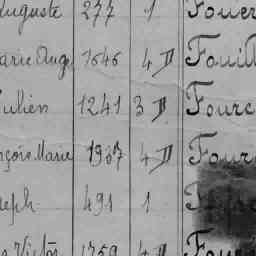 Auguste 277 1 Fouer
arie Ange 1646 4 D Fouill
Julien 1241 3 D Fourc
nçois Marie 1907 4 D Four
seph 491 1
Victor 1759 4 D